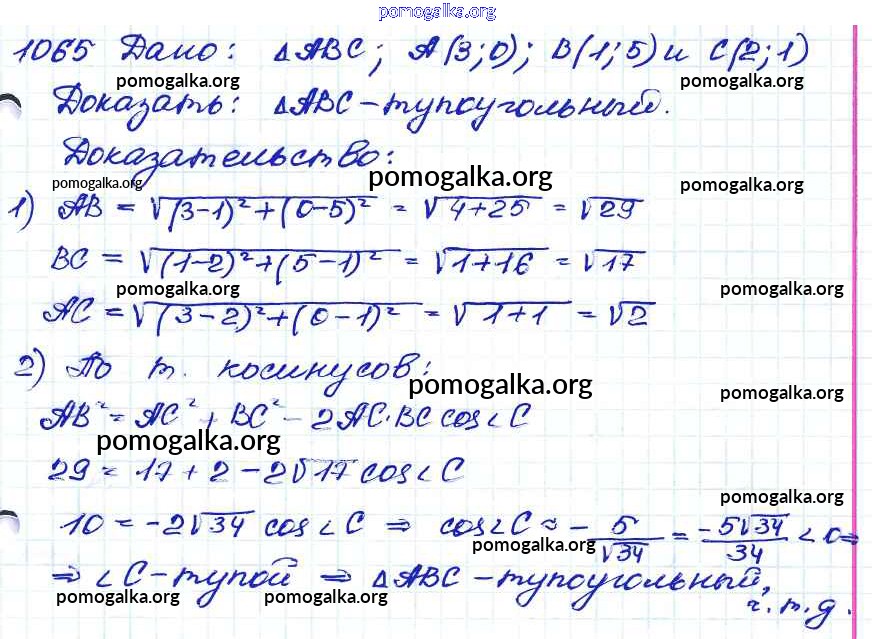 pomogalka.org
1065 Дано: △ABC; A(3;0); B(1;5) и C(2;1)
pomogalka.org pomogalka.org
Доказать: △ABC – тупоугольный.
Доказательство:
pomogalka.org pomogalka.org pomogalka.org
1) AB = √(3-1)²+(0-5)² = √4+25 = √29
BC = √(1-2)²+(5-1)² = √1+16 = √17
pomogalka.org pomogalka.org
AC = √(3-2)²+(0-1)² = √1+1 = √2
2) По т. косинусов:
pomogalka.org pomogalka.org
AB² = AC² + BC² - 2AC·BC cos∠C
pomogalka.org
29 = 17 + 2 - 2√17 cos∠C
pomogalka.org
10 = -2√34 cos∠C ⇒ cos∠C = - 5/√34 = -5√34/34 < 0 ⇒
pomogalka.org
⇒ ∠C – тупой ⇒ △ABC – тупоугольный,
pomogalka.org pomogalka.org
ч.т.д.